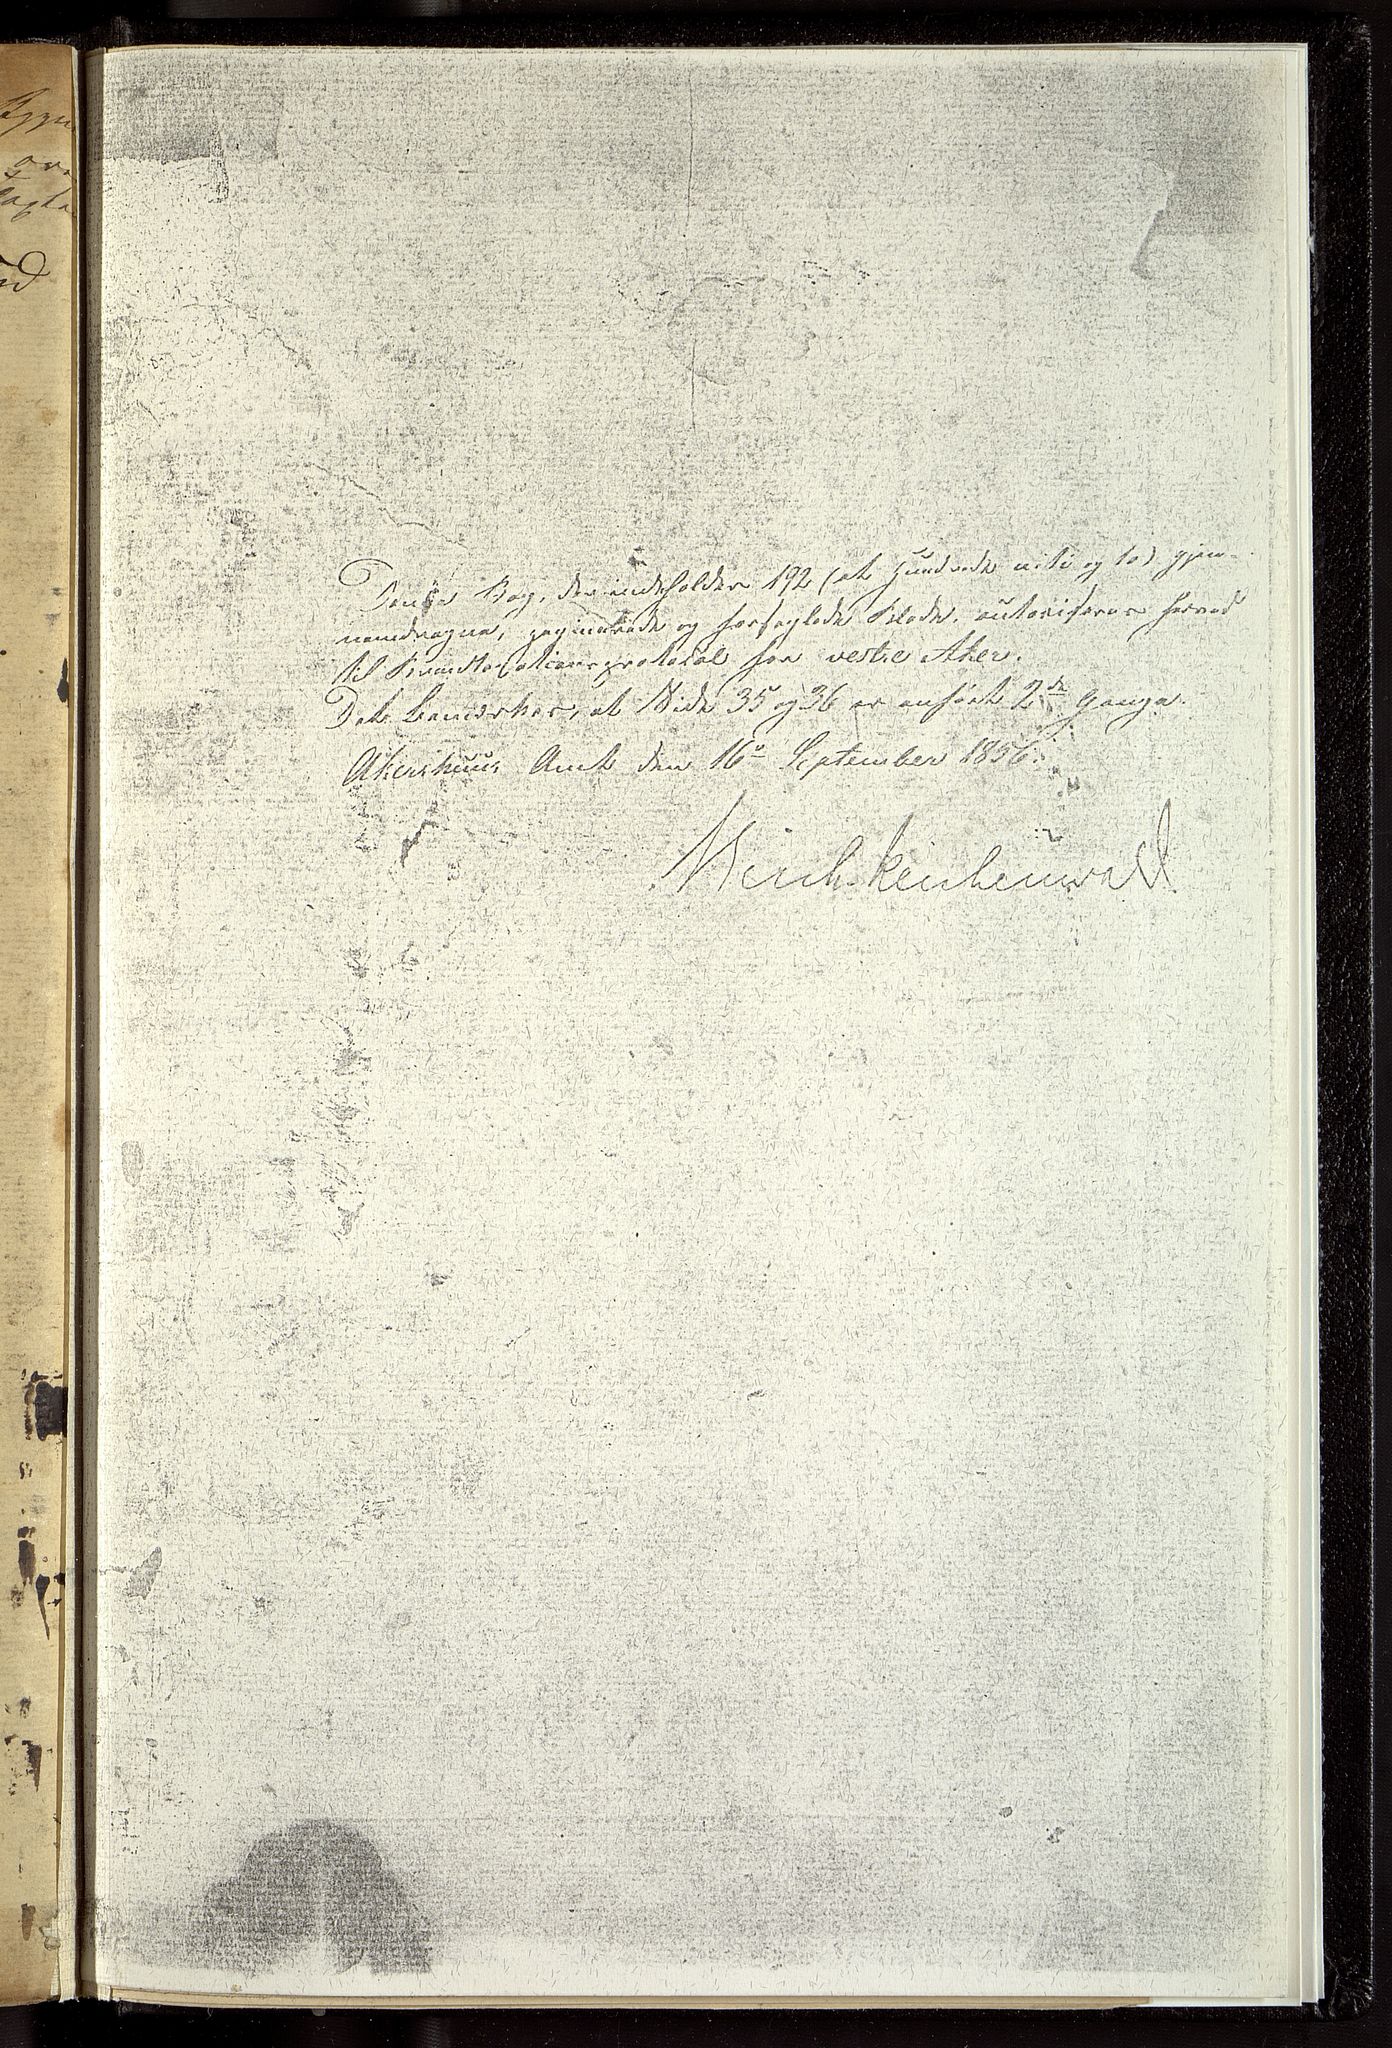 Denne Bog, der indeholder 192 (et Hundrede niti og to) gjen-
nemdragne, paginerede og forseglede Blade, autoriseres herved
til Brandtaxationsprotokol for vestre Aker.
Det bemærkes, at Side 35 og 36 er anført 2de Gange.
Akershuus Amt den 16de September 1856.
Birch-Reichenwald